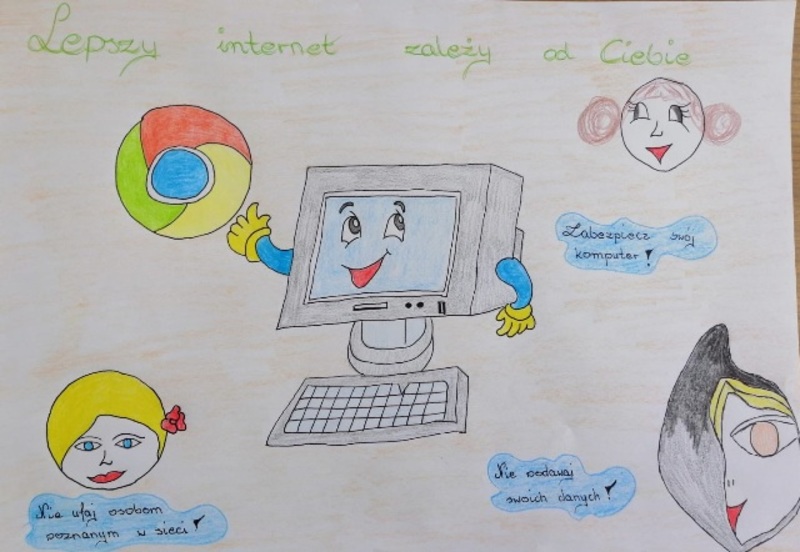 Lepszy internet zależy od Ciebie
Zabezpiecz swój
komputer!
Nie podawaj
swoich danych!
Nie ufaj osobom
poznanym w sieci!